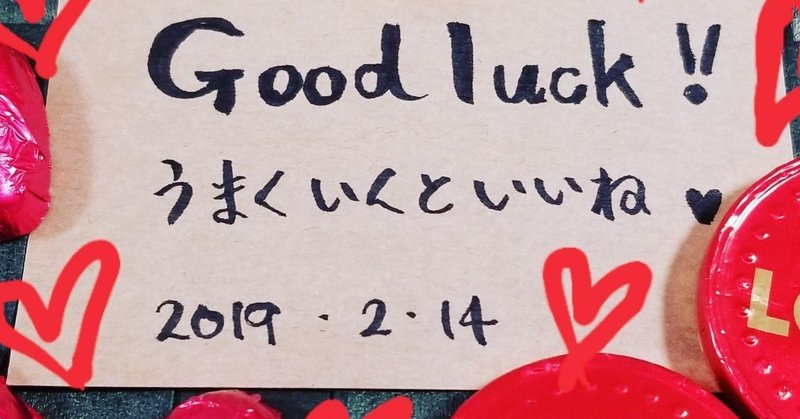 Good luck!!
うまくいくといいね♥
2019.2.14